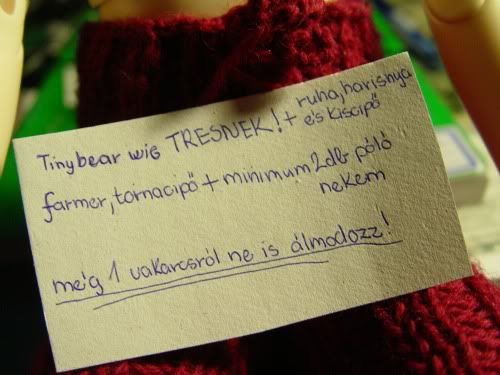 Tinybear wig TRESNEK! + ruha, harisnya
és kiscipő
farmer, tornacipő + minimum 2db póló
nekem
még 1 vakarcsról ne is álmodozz!